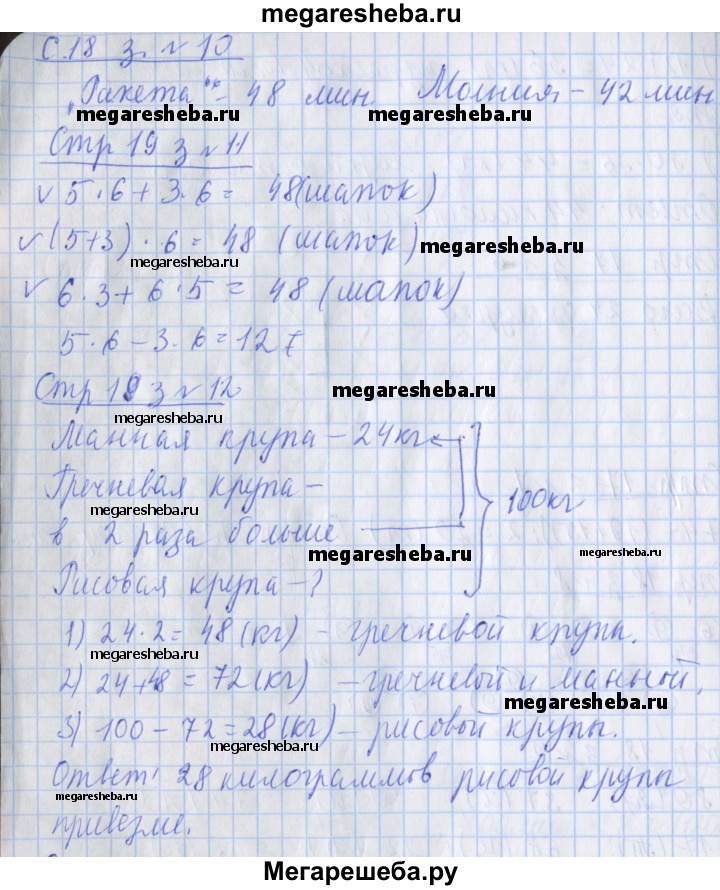 megaresheba.ru
С.18 з. № 10
"Ракета" - 48 мин. Молния - 42 мин
megaresheba.ru megaresheba.ru
Стр 19 з № 11
√ 5·6+3·6= 48(шапок)
√ (5+3)·6=48 (шапок) megaresheba.ru
megaresheba.ru
√ 6·3+6·5=48(шапок)
5·6-3·6=12
Стр 19 з № 12 megaresheba.ru
megaresheba.ru
Манная крупа - 24кг
Гречневая крупа - 100кг
в 2 раза больше
megaresheba.ru megaresheba.ru
Рисовая крупа - ?
1) 24·2=48(кг) - гречневой крупы.
megaresheba.ru
2) 24+48=72(кг) - гречневой и манной.
megaresheba.ru
3) 100-72=28(кг) - рисовой крупы.
megaresheba.ru
Ответ: 28 килограммов рисовой крупы
megaresheba.ru megaresheba.ru
привезли.
Мегарешеба.ру